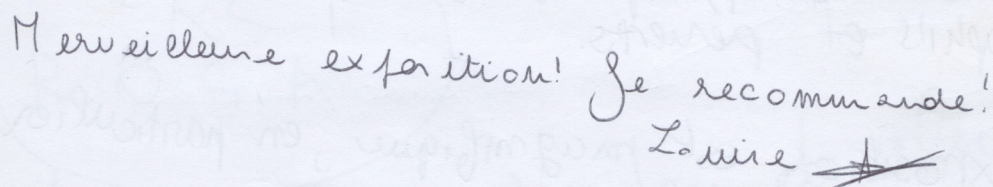 Merveilleuse exposition! Je recommande!
Louise